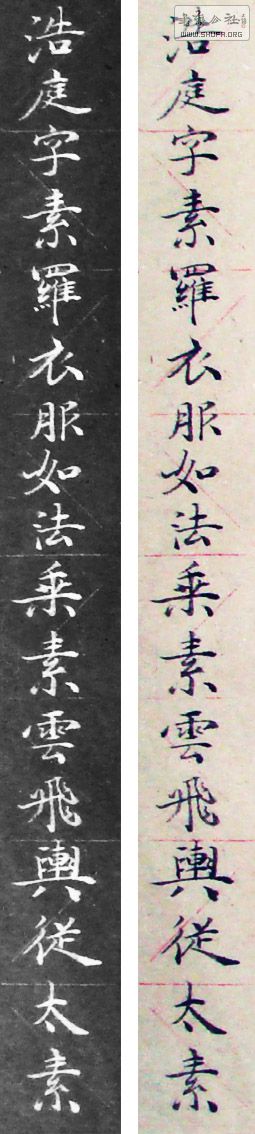 書法公社
WWW.SHUFA.ORG
浩庭字素羅衣服如法乗素雲飛輿従太素
浩庭字素羅衣服如法乗素雲飛輿従太素